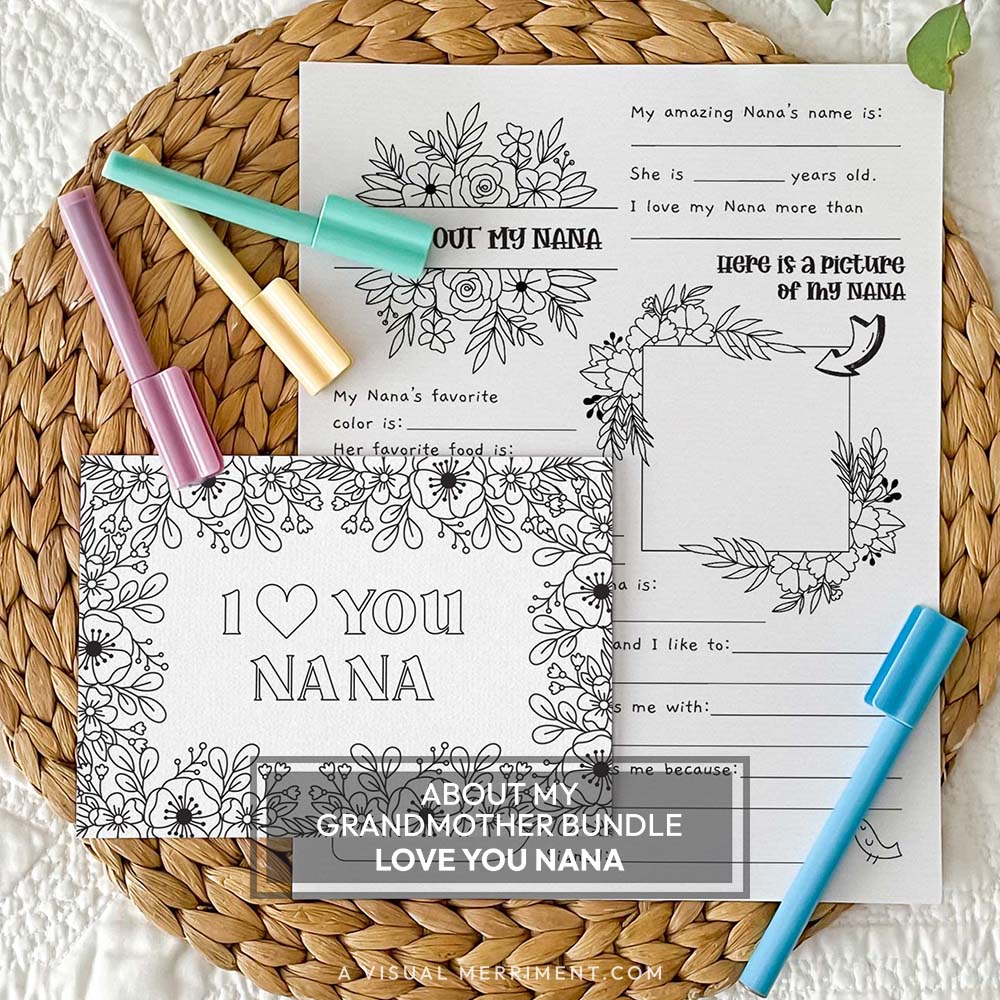 My amazing Nana's name is:
She is ________ years old.
I love my Nana more than
OUT MY NANA
Here is a picture
of my NANA
My Nana's favorite
color is:
Her favorite food is:
na is:
and I like to:
s me with:
s me because:
I ♡ YOU
NANA
ABOUT MY
GRANDMOTHER BUNDLE
LOVE YOU NANA
A VISUAL MERRIMENT.COM